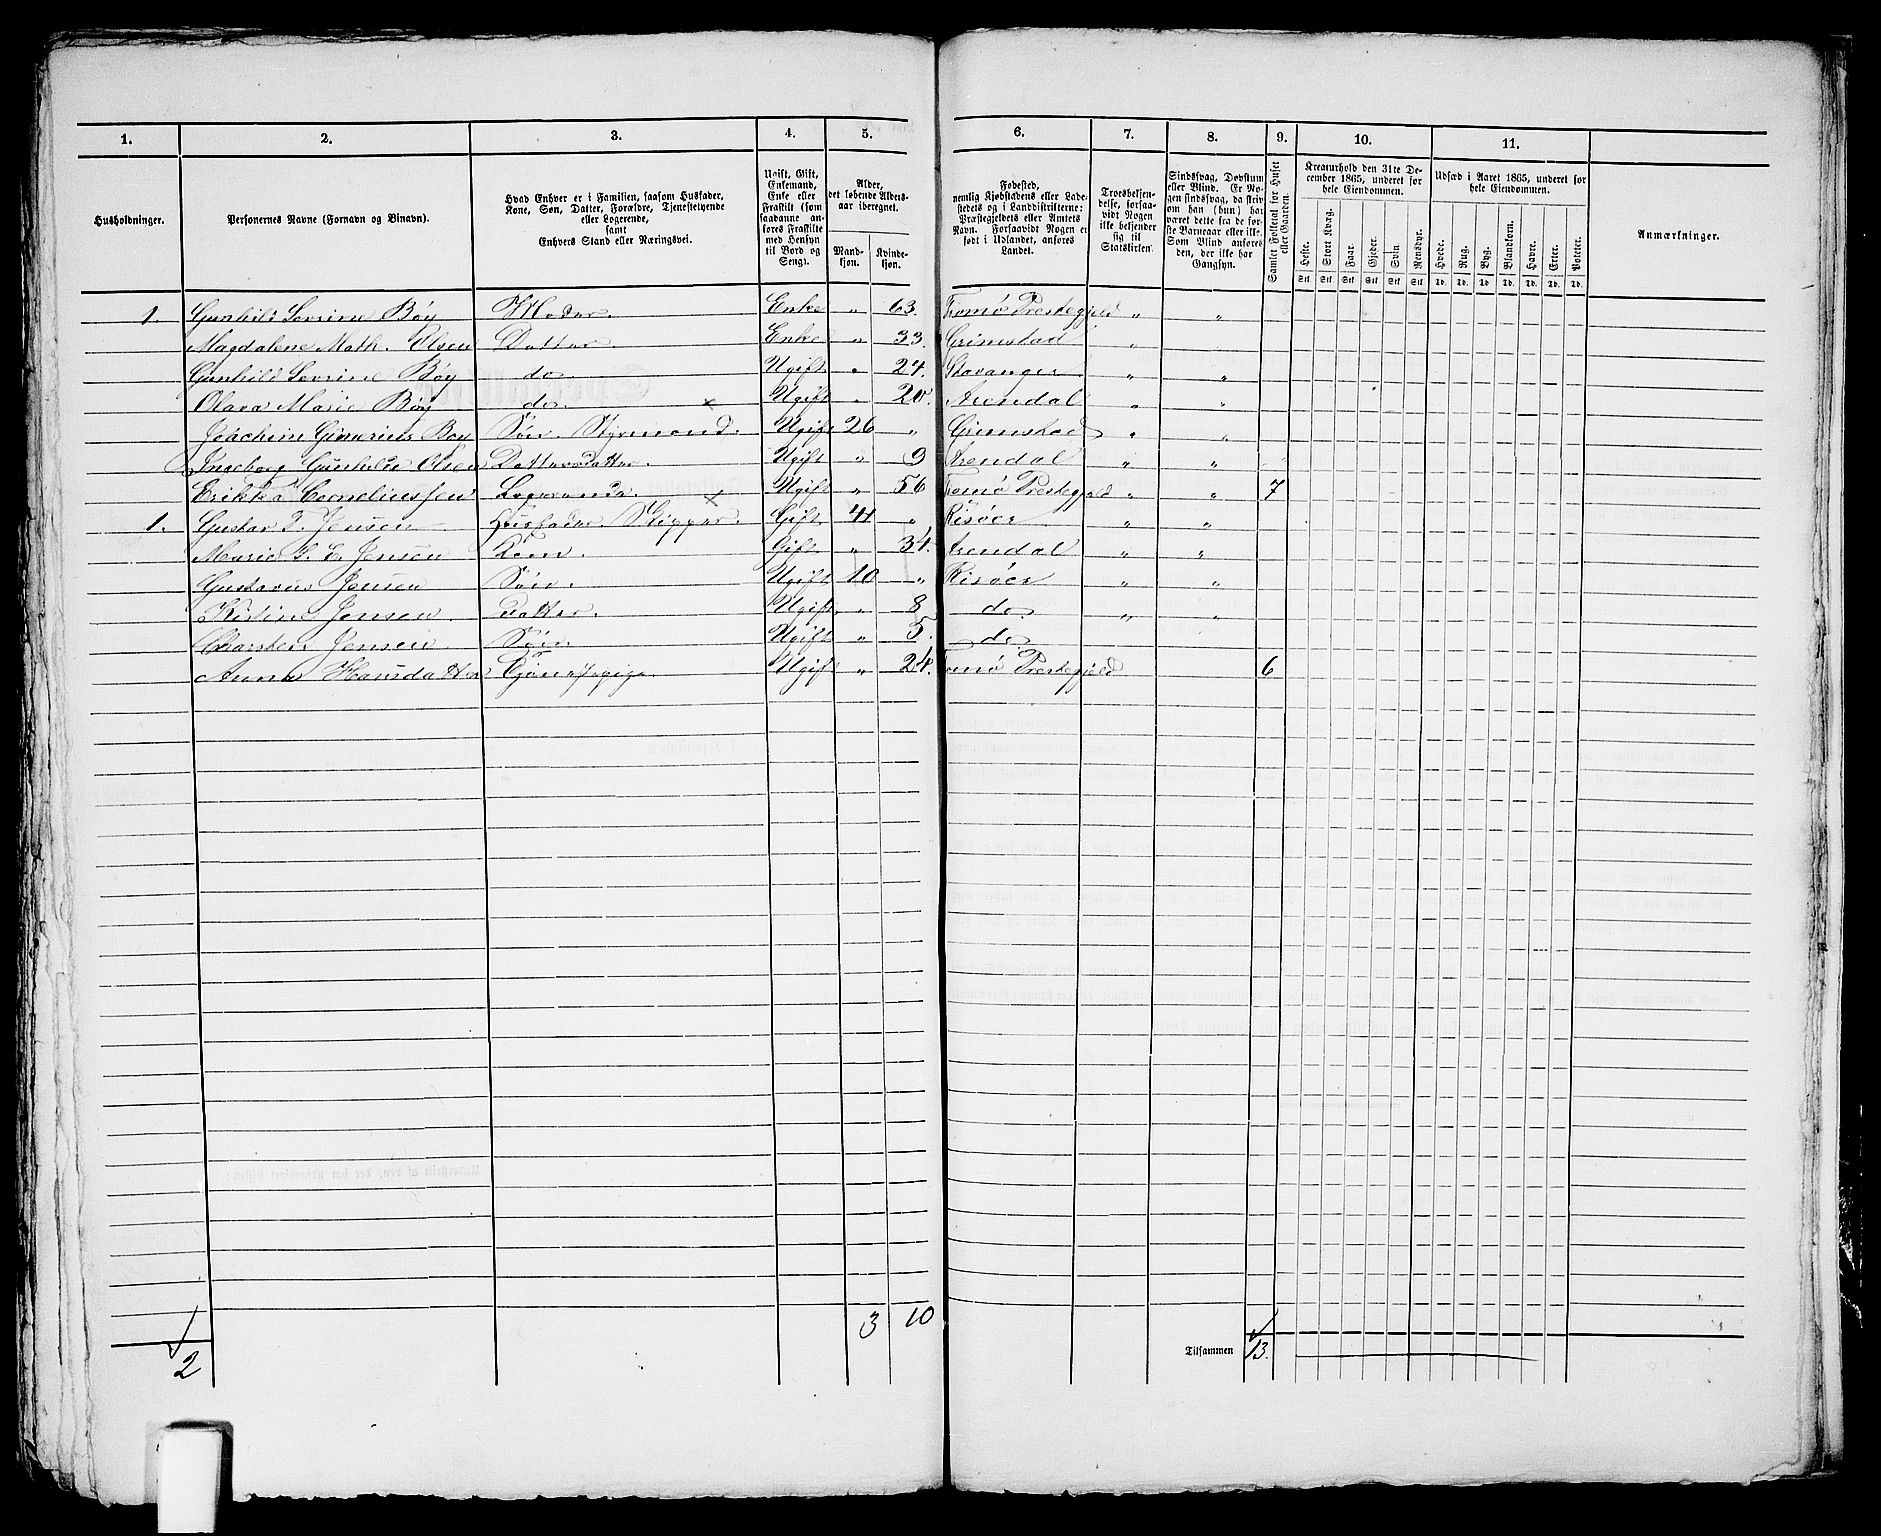 1. 2. 3. 4. 5. 6. 7. 8. 9. 10. 11.
Husholdninger.
Personernes Navne (Fornavn og Binavn).
Hvad Enhver er i Familien, saasom Husfader,
Kone, Søn, Datter, Forældre, Tjenestetyende
eller Logerende,
samt
Enhvers Stand eller Næringsvei.
Ugift, Gift,
Enkemand,
Enke eller
Fraskilt (som
saadanne an-
føres Fraskilte
med Hensyn
til Bord og
Seng).
Alder,
det løbende Alders-
aar iberegnet.
Mand-
kjøn.
Kvinde-
kjøn.
Fødested,
nemlig Kjøbstadens eller Lade-
stedets og i Landdistrikterne:
Præstegjeldets eller Amtets
Navn. Forsaavidt Nogen er
født i Udlandet, anføres
Landet.
Troesbekjen-
delse, forsaa-
vidt Nogen
ikke bekjender
sig til
Statskirken.
Sindssvag, Døvstum
eller Blind. Er No-
gen sindssvag, da skriv
om han (hun) har
været dette fra de før-
ste Barneaar eller ikke.
Som Blind anføres
den, der ikke har
Gangsyn.
Samlet Folketal for Huset
eller Gaarden.
Kreaturhold den 31te De-
cember 1865, underet for
hele Eiendommen.
Heste. Stort Kvæg. Faar. Gjeder. Svin. Rensdyr.
Stk. Stk. Stk. Stk. Stk. Stk.
Udsæd i Aaret 1865, underet for
hele Eiendommen.
Hvede. Rug. Byg. Blandkorn. Havre. Erter. Poteter.
Td. Td. Td. Td. Td. Td. Td.
Anmærkninger.
1. Gunhild Sevrine Bøy Moder. Enke " 63. Tromø Prestegjeld " "
Magdalene Math. Olsen Datter. Enke " 33. Grimstad "
Gunhild Sevrine Bøy do. Ugift " 24. Stavanger " "
Olava Marie Bøy do. × Ugift " 20. Arendal " "
Joachim Bøy Søn. Styrmand. Ugift 26 " Grimstad " "
Ingeborg Gunhilde Olsen Dattersdatter. Ugift " 9 Arendal " "
Erikka Corneliussen Logerende. × Ugift " 56 Tromø Prestegjeld " " 7
1. Gustav T. Jensen Husfader Skipper. Gift 41 " Risöer " "
Marie S. E. Jensen Kone. Gift " 34. Arendal " "
Gustavus Jensen Søn. Ugift 10 " Risöer " "
Kistine Jensen. Datter. Ugift " 8 do. " "
Carsten Jensen Søn. Ugift " 5. do.
Anna Hansdatter Tjenestepige. Ugift " 24. Tromø Prestegjeld 6
2 3 10 Tilsammen 13.